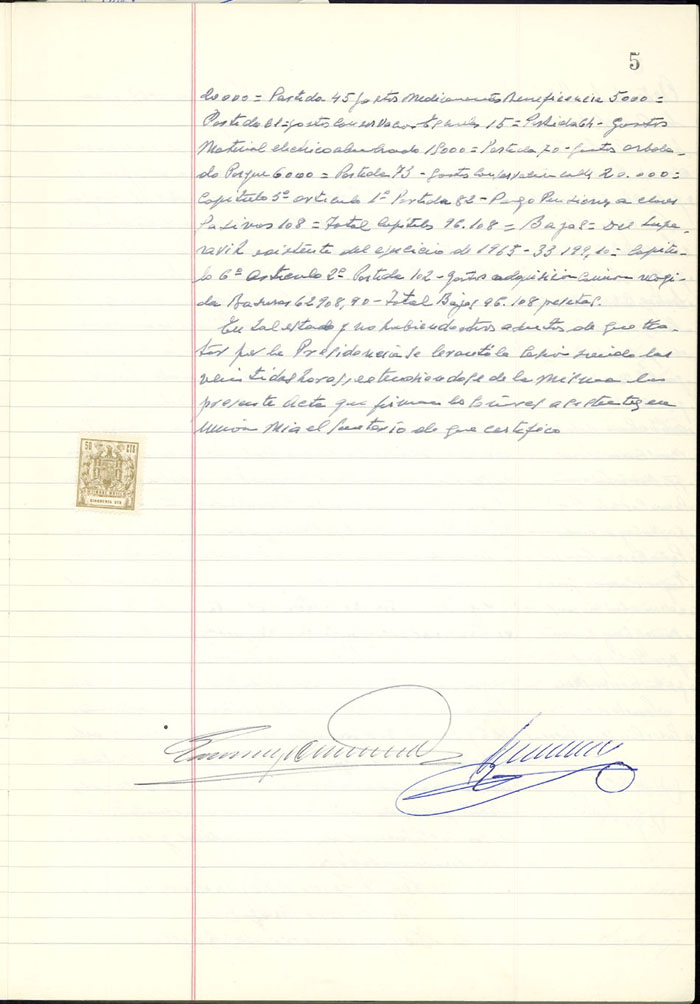 5
20000= Partida 45 gastos Medicamentos Beneficencia 5000=
Partida 61= gastos conservacion 15= Partida 64- Gastos
Material electrico alumbrado 15000= Partida 70- Gastos arbola-
do Parque 6000= Partida 73- gastos conservacion calles 20.000=
Capitulo 5º articulo 1º Partida 82- Pago Pensiones a clases
Pasivas 108= Total Capitulos 96.108= Bajas= Del supe-
ravit existente del ejercicio de 1965- 33.199,10= Capitu-
lo 6º articulo 2º Partida 102- Gastos adquisicion camion recogi-
da Basuras 62908,90- Total Bajas 96.108 pesetas.
En tal estado y no habiendo otros asuntos de que tra-
tar por la Presidencia se levantó la sesion siendo las
veintidos horas, extendiendose de la misma la
presente Acta que firman los señores asistentes en
union mia el Secretario de que certifico
50 CTS